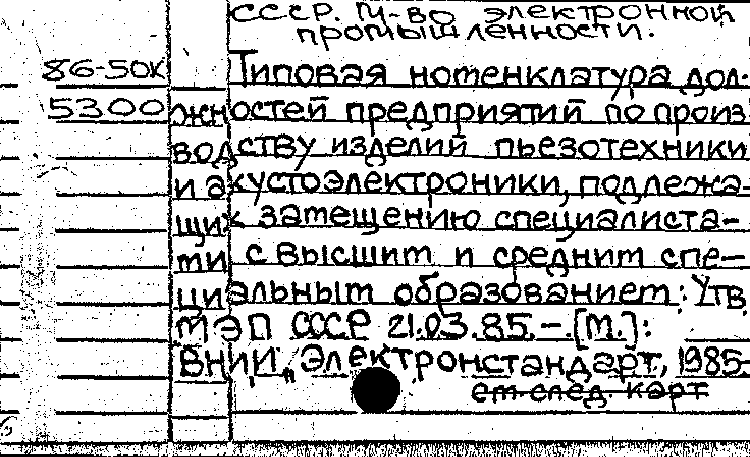 СССР. М-во электронной
промышленности.
86-50К Типовая номенклатура дол-
5300 жностей предприятий по произ
водству изделий пьезотехники
и акустоэлектроники, подлежа-
щих затещению специалиста-
ми с высшим и средним спе-
циальным образованием: Утв.
МЭП СССР 21.03.85. – [М.]:
ВНИИ „Электронстандарт, 1985.
см. след. карт